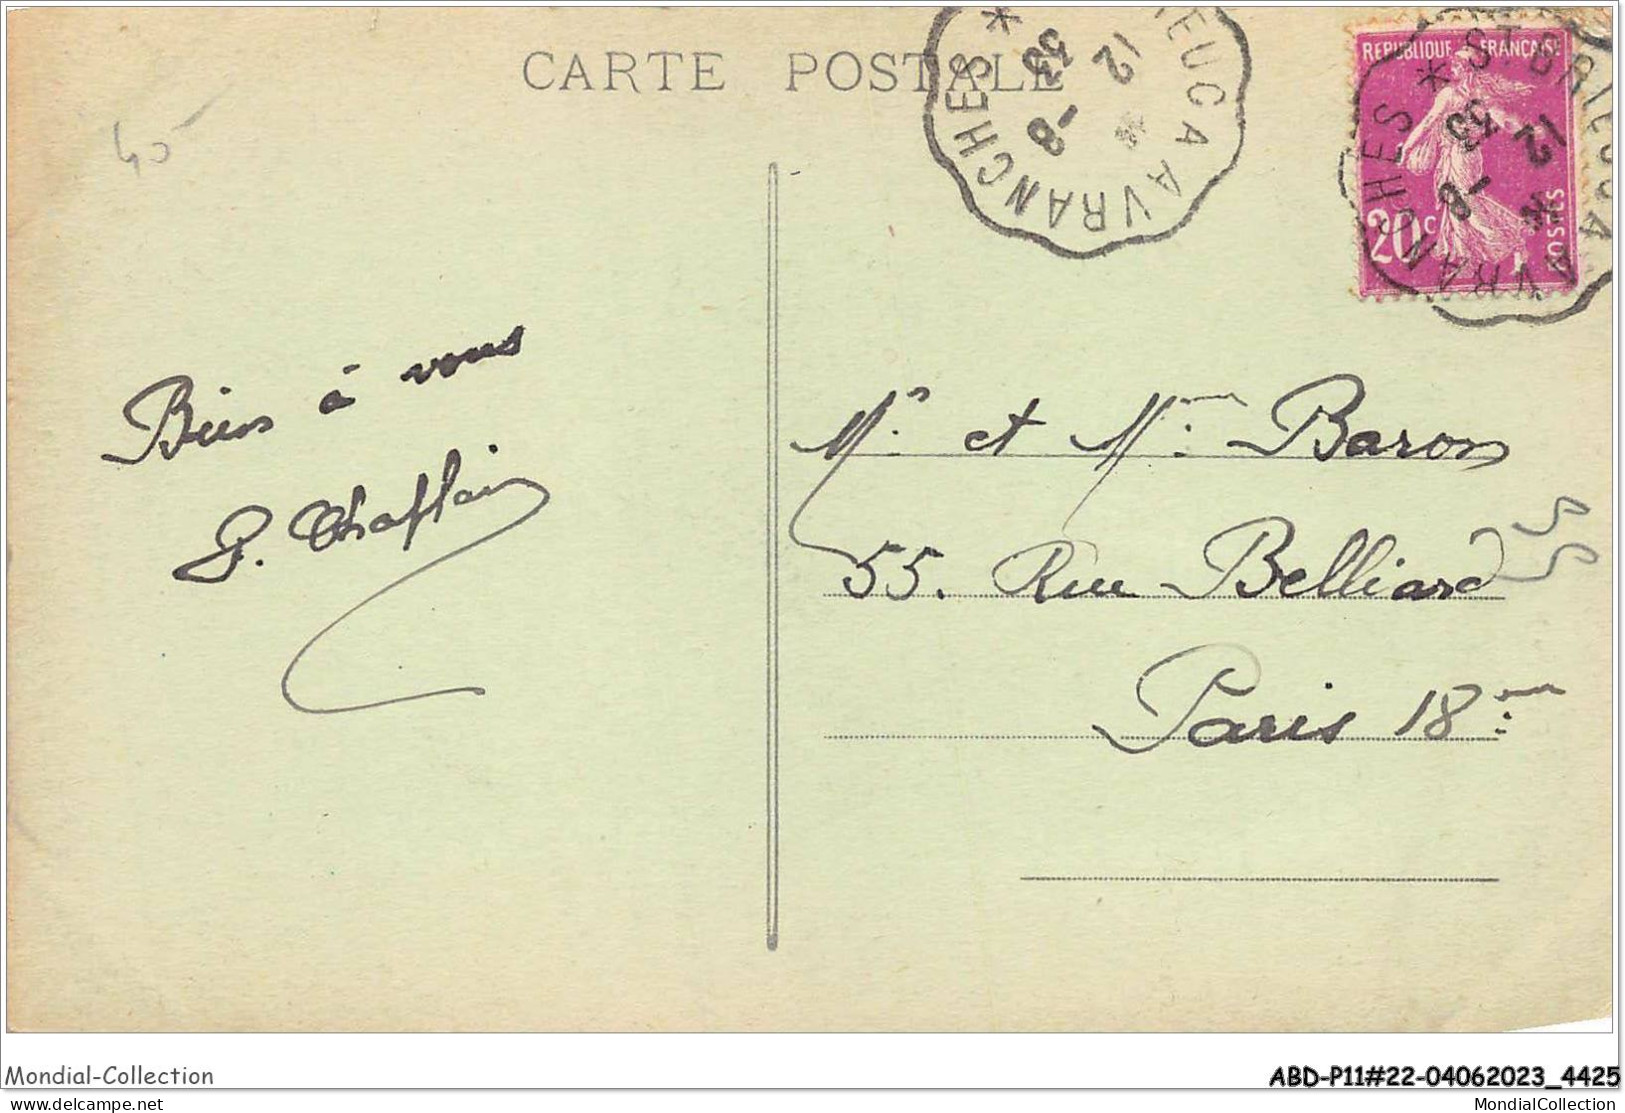 CARTE POSTALE
ST BRIEUC A AVRANCHES *
12 * -8 33
REPUBLIQUE FRANÇAISE
20c
POSTES
ST BRIEUC A AVRANCHES *
12 * -8 33
40
Bien à vous
Mr. et Mme. Baron
55. Rue Belliard
Paris 18.me
Mondial-Collection
ABD-P11#22-04062023_4425
delcampe.net
MondialCollection